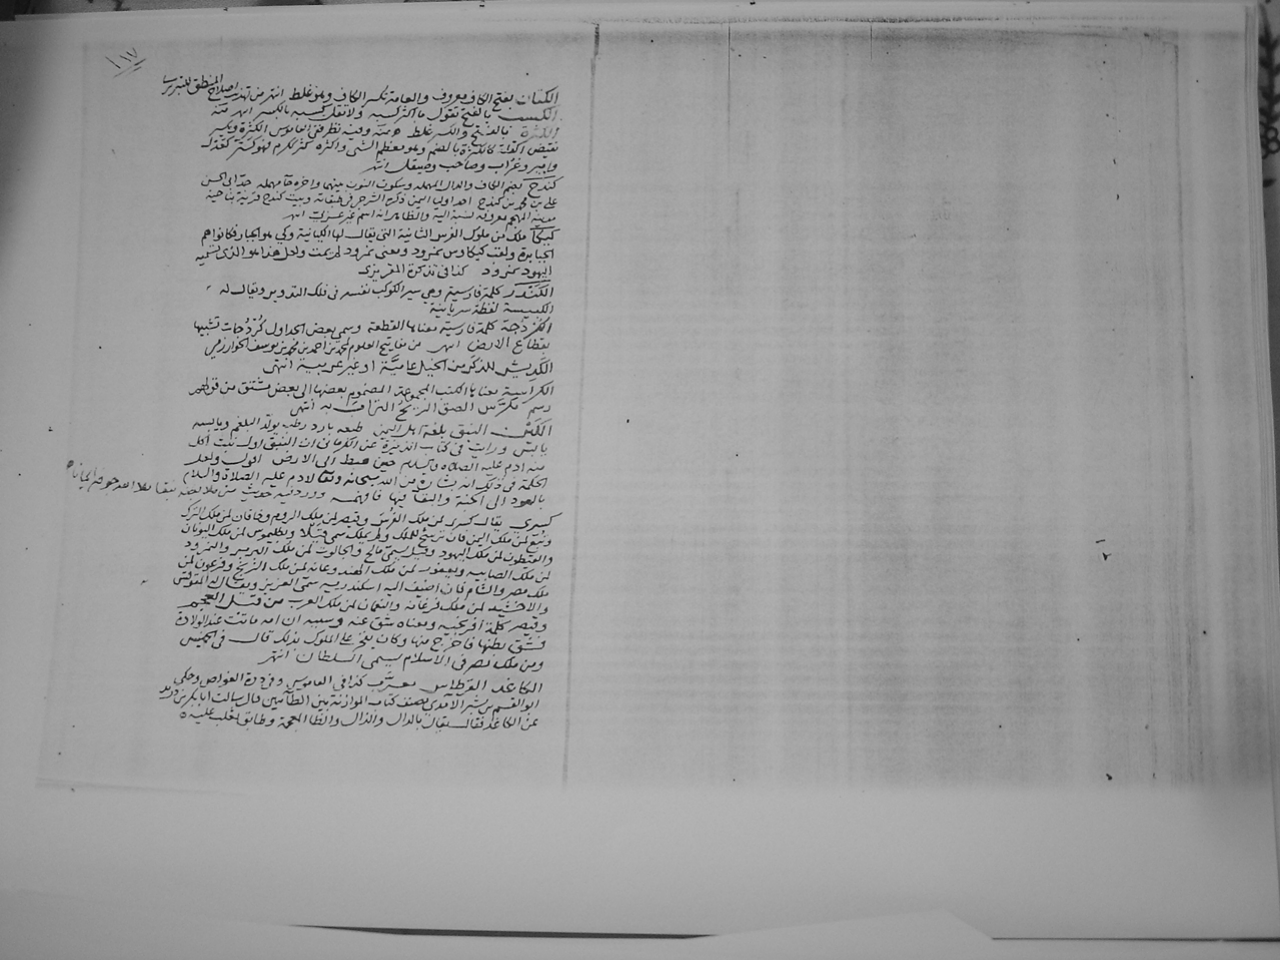 ١١٧
الكتان بفتح الكاف معروف والعامة تكسر الكاف وهو غلط انتهى من تهذيب اصلاح المنطق للتبريزي
الكسب بالفتح تقول ما اكثر كسبه ولا تقل كسبه بالكسر انتهى منه
الكثرة بالفتح والكسر غلط منه وفيه نظر ففي القاموس الكثرة ويكسر
نقيض القلة كالكثر بالضم وهو معظم الشي واكثره كثر ككرم فهو كثر كعدل
وامير وغراب وصاحب وصيقل انتهى
كندح بضم الكاف والدال المهملة وسكون النون بينهما واخره حا مهملة جد ابي الحسن
علي بن محمد بن كندح احد اوليا اليمن ذكره الشرجي في طبقاته وبيت كندح قرية بناحية
مدينة المهجم معروفة نسبة اليه والظاهر انه اسم غير عربي انتهى
كيكا ملك من ملوك الفرس الثانية التي يقال لها الكيانية وكي هو الجبار فكانوا هم
الجبابرة ولقب كيكاوس بنمرود ومعنى نمرود لم يمت ولعل هذا هو الذي تسميه
اليهود نمرود كذا في تذكرة المقريزي
كلمة فارسية وهي سير الكوكب نفسه في فلك التدوير ويقال له
الكبيسة لفظة سريانية
الكردجة كلمة فارسية معناها القطعة وسمي بعض الجداول كردجات تشبيها
بقطاع الارض انتهى من مفاتيح العلوم لمحمد بن احمد بن محمد بن يوسف الخوارزمي
الكديش للذكر من الخيل عامية او غير عربية انتهى
الكراسة معناها الكتب المجموعة المضموم بعضها الى بعض مشتق من قولهم
رسم مكرس الصق الريح التراب به انتهى
النبق بلغة اهل اليمن طبعه بارد رطب يولد البلغم ويابسه
يابس ورايت في كتاب عن الكرماني ان النبق اول نبت اكل
منه ادم عليه الصلاه والسلام حين هبط الى الارض اقول ولعل
الحكمة في ذلك انه بشارة من الله سبحانه وتعالى لادم عليه الصلاة والسلام
بالعود الى الجنة والبقا فيها فافهمه
كسرى يقال كسرى لمن ملك الفرس وقيصر لمن ملك الروم وخاقان لمن ملك الترك
وتبع لمن ملك اليمن فان ترشح للملك ولم يملك سمي قيلا وبطليموس لمن ملك اليونان
والقيطون لمن ملك اليهود وقيل اسمه مالخ والجالوت لمن ملك البربر والنمرود
لمن ملك الصابيه ويعفور لمن ملك الهند وغانه لمن ملك الزنج وفرعون لمن
ملك مصر والشام فان اضيف اليه اسكندريه سمي العزيز ويقال له المقوقس
والاخشيد لمن ملك فرغانه والنعمان لمن ملك العرب من قبل العجم
وقيصر كلمة افرنجيه ومعناه شق عنه وسببه ان امه ماتت عند الولادة
فشق بطنها فاخرج منها وكان يفخر على الملوك بذلك قال في الخميس
ومن ملك مصر في الاسلام يسمى السلطان انتهى
الكاغد القرطاس معرب كذا في القاموس وفي درة الغواص وحكى
ابو القسم بن بشر الآمدي مصنف كتاب الموازنة بين الطائيين قال سالت ابا بكر بن دريد
عن الكاغد فقال يقال بالدال والذال والظا المعجمة